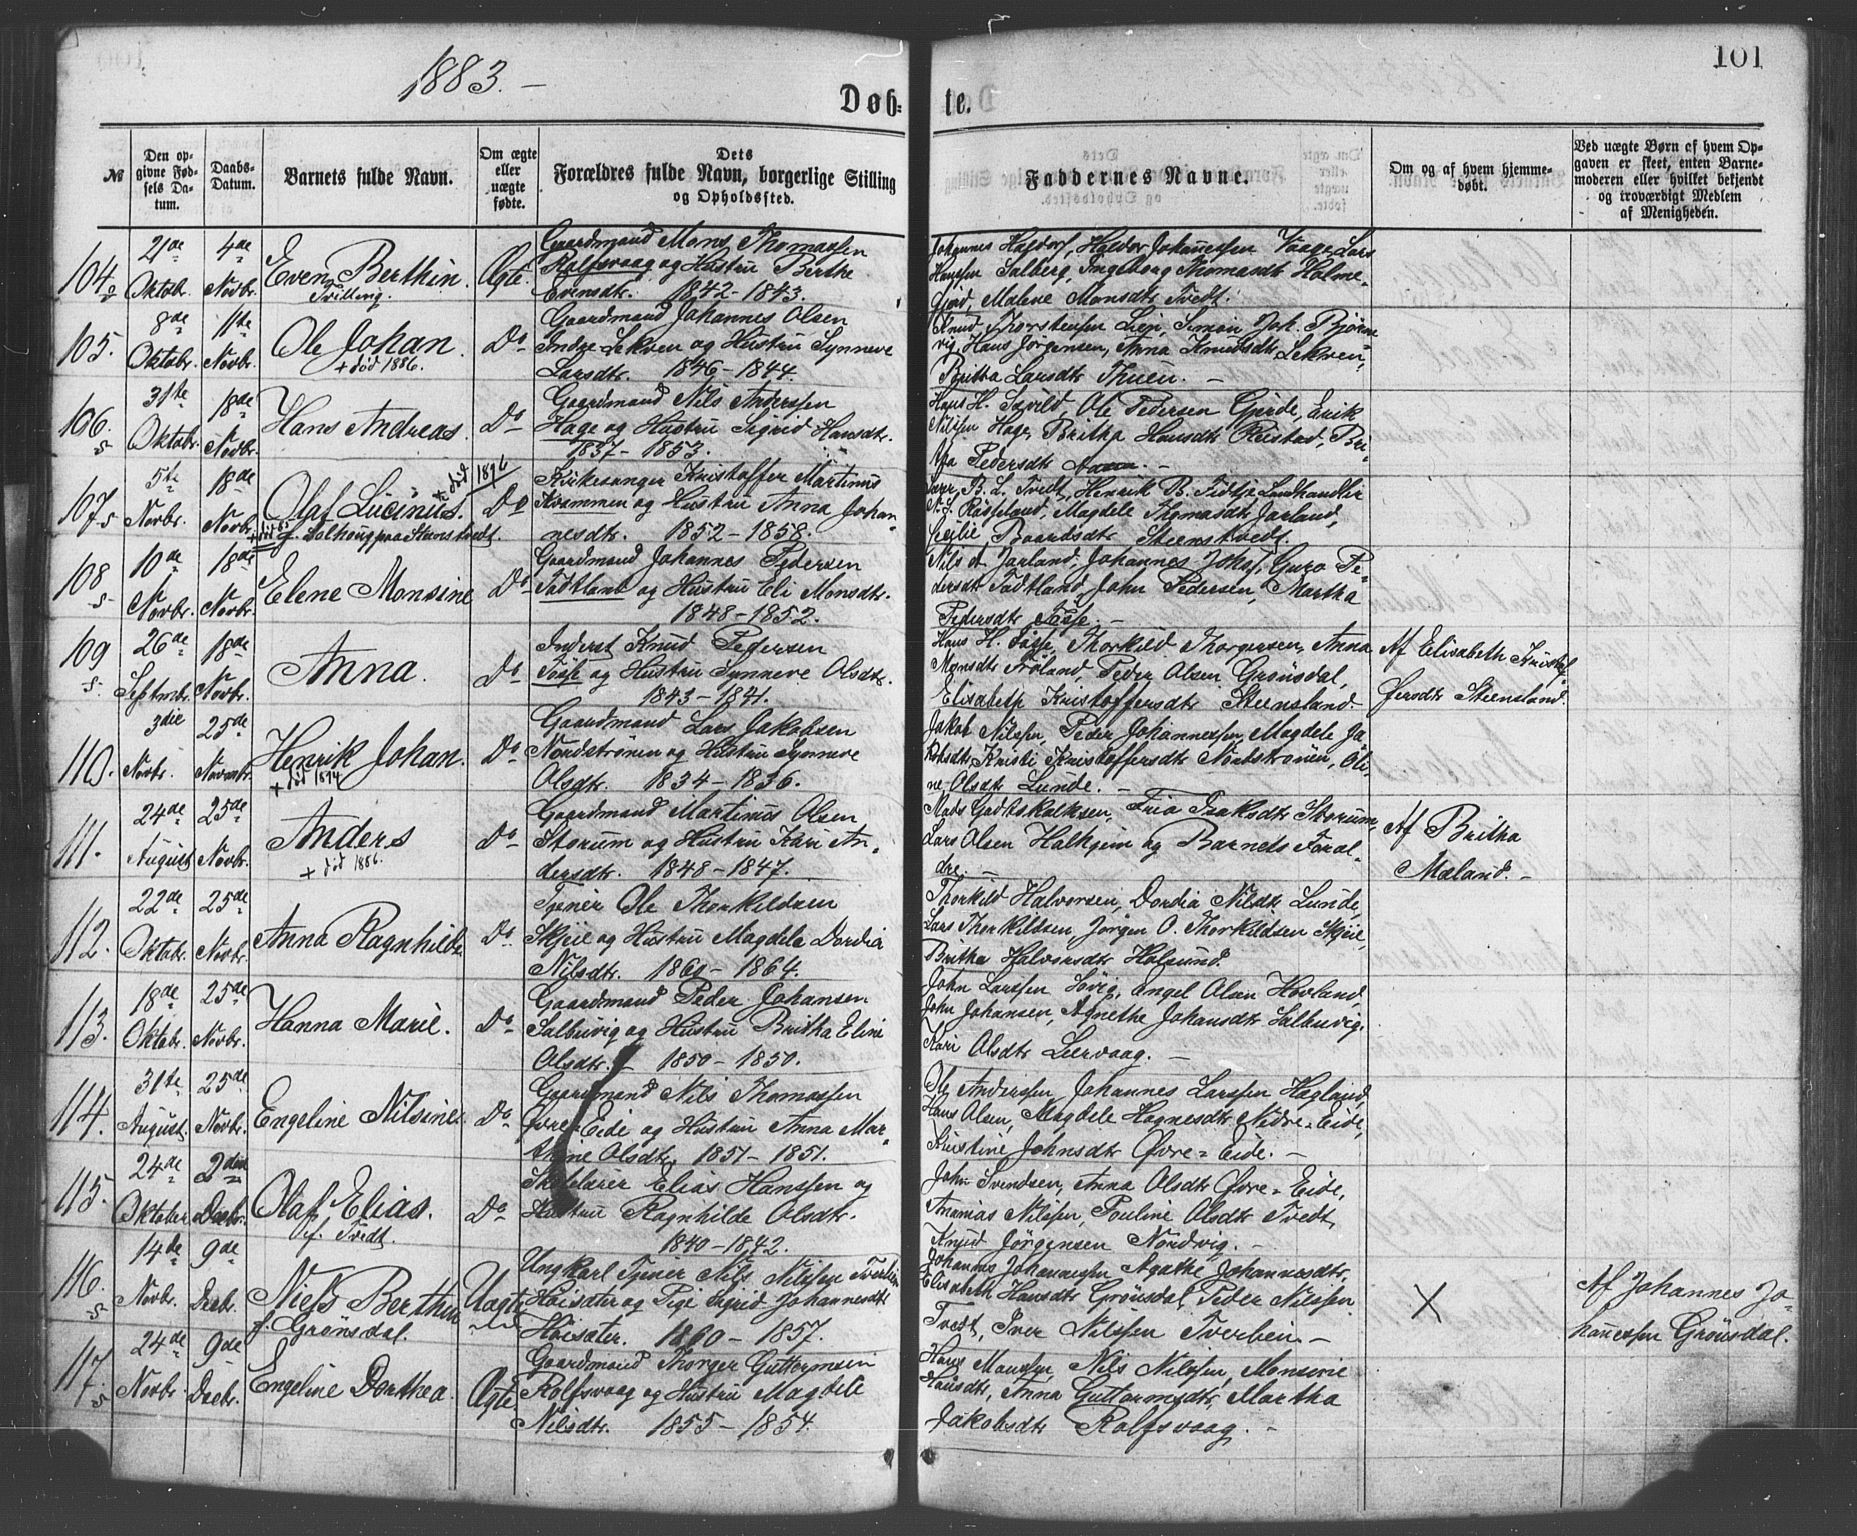 1883. -
101
Døb-
te.
№
Den op-
givne Fød-
sels Da-
tum.
Daabs-
Datum.
Barnets fulde Navn.
Om ægte
eller
uægte
fødte.
Dets
Forældres fulde Navn, borgerlige Stilling
og Opholdssted.
Faddernes Navne.
Om og af hvem hjemme-
døbt.
Ved uægte Børn af hvem Op-
gaven er skeet, enten Barne-
moderen eller hvilket bekjendt
og troværdigt Medlem
af Menigheden.
104.
21de
Oktobr.
4de
Novbr.
Even Berthin.
Tvilling.
Ægte.
Gaardmand Mons Thomassen
Rolfsvaag og Hustru Berthe
Evensdtr. 1842 - 1843.
Johannes Haldors., Haldor Johannessen Vaage, Lars
Hanssen Salberg, Ingeborg Thomasdtr Holme-
fjord, Malene Monsdtr Tvedt.
105.
8de
Oktobr.
11te
Novbr.
Ole Johan.
+ død 1886.
Do
Gaardmand Johannes Olsen
Indre Lekven og Hustru Synneve
Larsdtr. 1846 - 1844.
Knud Thorstensen Lien, Simon Joh. Bjørne-
vig, Hans Jørgensen, Anna Knudsdtr Lekven,
Britha Larsdtr Thuen. -
106.
s
31te
Oktobr.
18de
Novbr.
Hans Andreas.
Do
Gaardmand Nils Anderssen
Hage og Hustru Sigrid Hansdtr.
1837 - 1853.
Hans H. Ole Pedersen Gjerde, Erik
Nilssen Hage, Britha Hansdtr Rustad, Bri-
tha Pedersdtr -
107.
s
5te
Novbr.
18de
Novbr.
Olaf Lucinius.
+ død 1896
f. Solhoug paa Steinstvedt.
Do
Kirkesanger Kristoffer Martinus
Kvammen og Hustru Anna Johan-
nesdtr. 1852 - 1858.
B. L. Tvedt, Henrik B. Landhandler
N. J. Røsseland, Magdele Thomasdtr Jarland,
Baardsdtr Steenstvedt.
108
s
10de
Novbr.
18de
Novbr.
Elene Monsine
Do
Gaardmand Johannes Pedersen
Tødtland og Hustru Eli Monsdtr.
1848 - 1852.
Nils Jarland, Johannes Johs., Guro Pe-
dersdtr Tødtland, John Pedersen, Martha
Pedersdtr -
109
s
26de
Septmbr.
18de
Novbr.
Anna.
Do
Inderst Knud Pedersen
og Hustru Synneve Olsdtr.
1843 - 1841.
Hans H. Thorkild Thorgersen, Anna
Monsdtr Frøland, Peder Olsen Grønsdal,
Elisabeth Kristoffersdtr Steensland.
Af Elisabeth Kristof-
fersdtr Steensland.
110.
3die
Novbr.
25de
Novembr.
Henrik Johan.
+ død 1894
Do
Gaardmand Lars Jakobsen
Nordstrønen og Hustru Synneve
Olsdtr. 1834 - 1836.
Jakob Nilssen, Peder Johannessen, Magdele Ja-
kobsdtr, Kristi Kristoffersdtr Nordstrønen, Oli-
ne Olsdtr Lunde. -
111.
24de
August
25de
Novbr.
Anders
+ død 1886.
Do
Gaardmand Martinus Olsen
Storum og Hustru Kari An-
dersdtr. 1848 - 1847.
Mads Godtskalksen, Isaksdtr Storum,
Lars Olsen Halhjem og Barnets Foræl-
dre. -
Af Britha
Mæland. -
112.
22de
Oktobr.
25de
Novbr.
Anna Ragnhilde
Do
Tjener Ole Thorkildsen
Skjeie og Hustru Magdela Dordia
Nilsdtr. 1860 - 1864.
Thorkild Halversen, Dordia Nilsdtr Lunde,
Lars Thorkildsen, Jørgen O. Thorkildsen Skjeie,
Britha Halvorsdtr Holsund.
113.
18de
Oktobr.
25de
Novbr.
Hanna Marie.
Do
Gaardmand Peder Johansen
Salbuvig og Hustru Britha Eline
Olsdtr. - 1850 - 1850.
John Larssen Søvig, Engel Olsen Hovland,
John Johansen, Agnethe Johansdtr Salbuvig.
Kari Olsdtr Leervaag. -
114.
31te
August.
25de
Novbr.
Engeline Nilsine
Do
Gaardmand Nils Thomassen
Øvre-Eide og Hustru Anna Mar-
Olsdtr. 1851 - 1851.
Ole Anderssen, Johannes Larssen Hegland,
Hans Olsen, Magdele Hagnesdtr Nedre-Eide,
Kristine Johnsdtr Øvre-Eide. -
115.
24de
Oktober
2den
Decbr.
Olaf Elias.
f. Tvedt.
Do
Skolelærer Elias Hanssen og
Hustru Ragnhilde Olsdtr.
1840 - 1842.
John Svendsen, Anna Olsdtr Øvre-Eide,
Ananias Nilssen, Pouline Olsdtr Tvedt,
Knud Jörgensen Nordvig. -
116.
s
14de
Novbr.
9de
Decbr.
Niels Berthin
f. Grønsdal.
Uægte
Ungkarl Tjener Nils Nilssen Tverbein
Høisæter og Pige Sigrid Johannesdtr
Høisæter. 1860 - 1857.
Johannes Johannessen, Agathe Johannesdtr,
Elisabeth Hansdtr Grønsdal, Peder Nilssen
Tvedt, Iver Nilssen Tverbein. -
X
Af Johannes Jo-
hannessen Grønsdal.
117.
s
24de
Novbr.
9de
Decbr.
Engeline Dorthea.
Ægte
Gaardmand Thorger Guttormsen
Rolfsvaag og Hustru Magdele
Nilsdtr. 1855 - 1854.
Hans Monssen, Nils Nilssen, Monsine
Hansdtr, Anna Guttormsdtr, Martha
Jakobsdtr Rolfsvaag. -